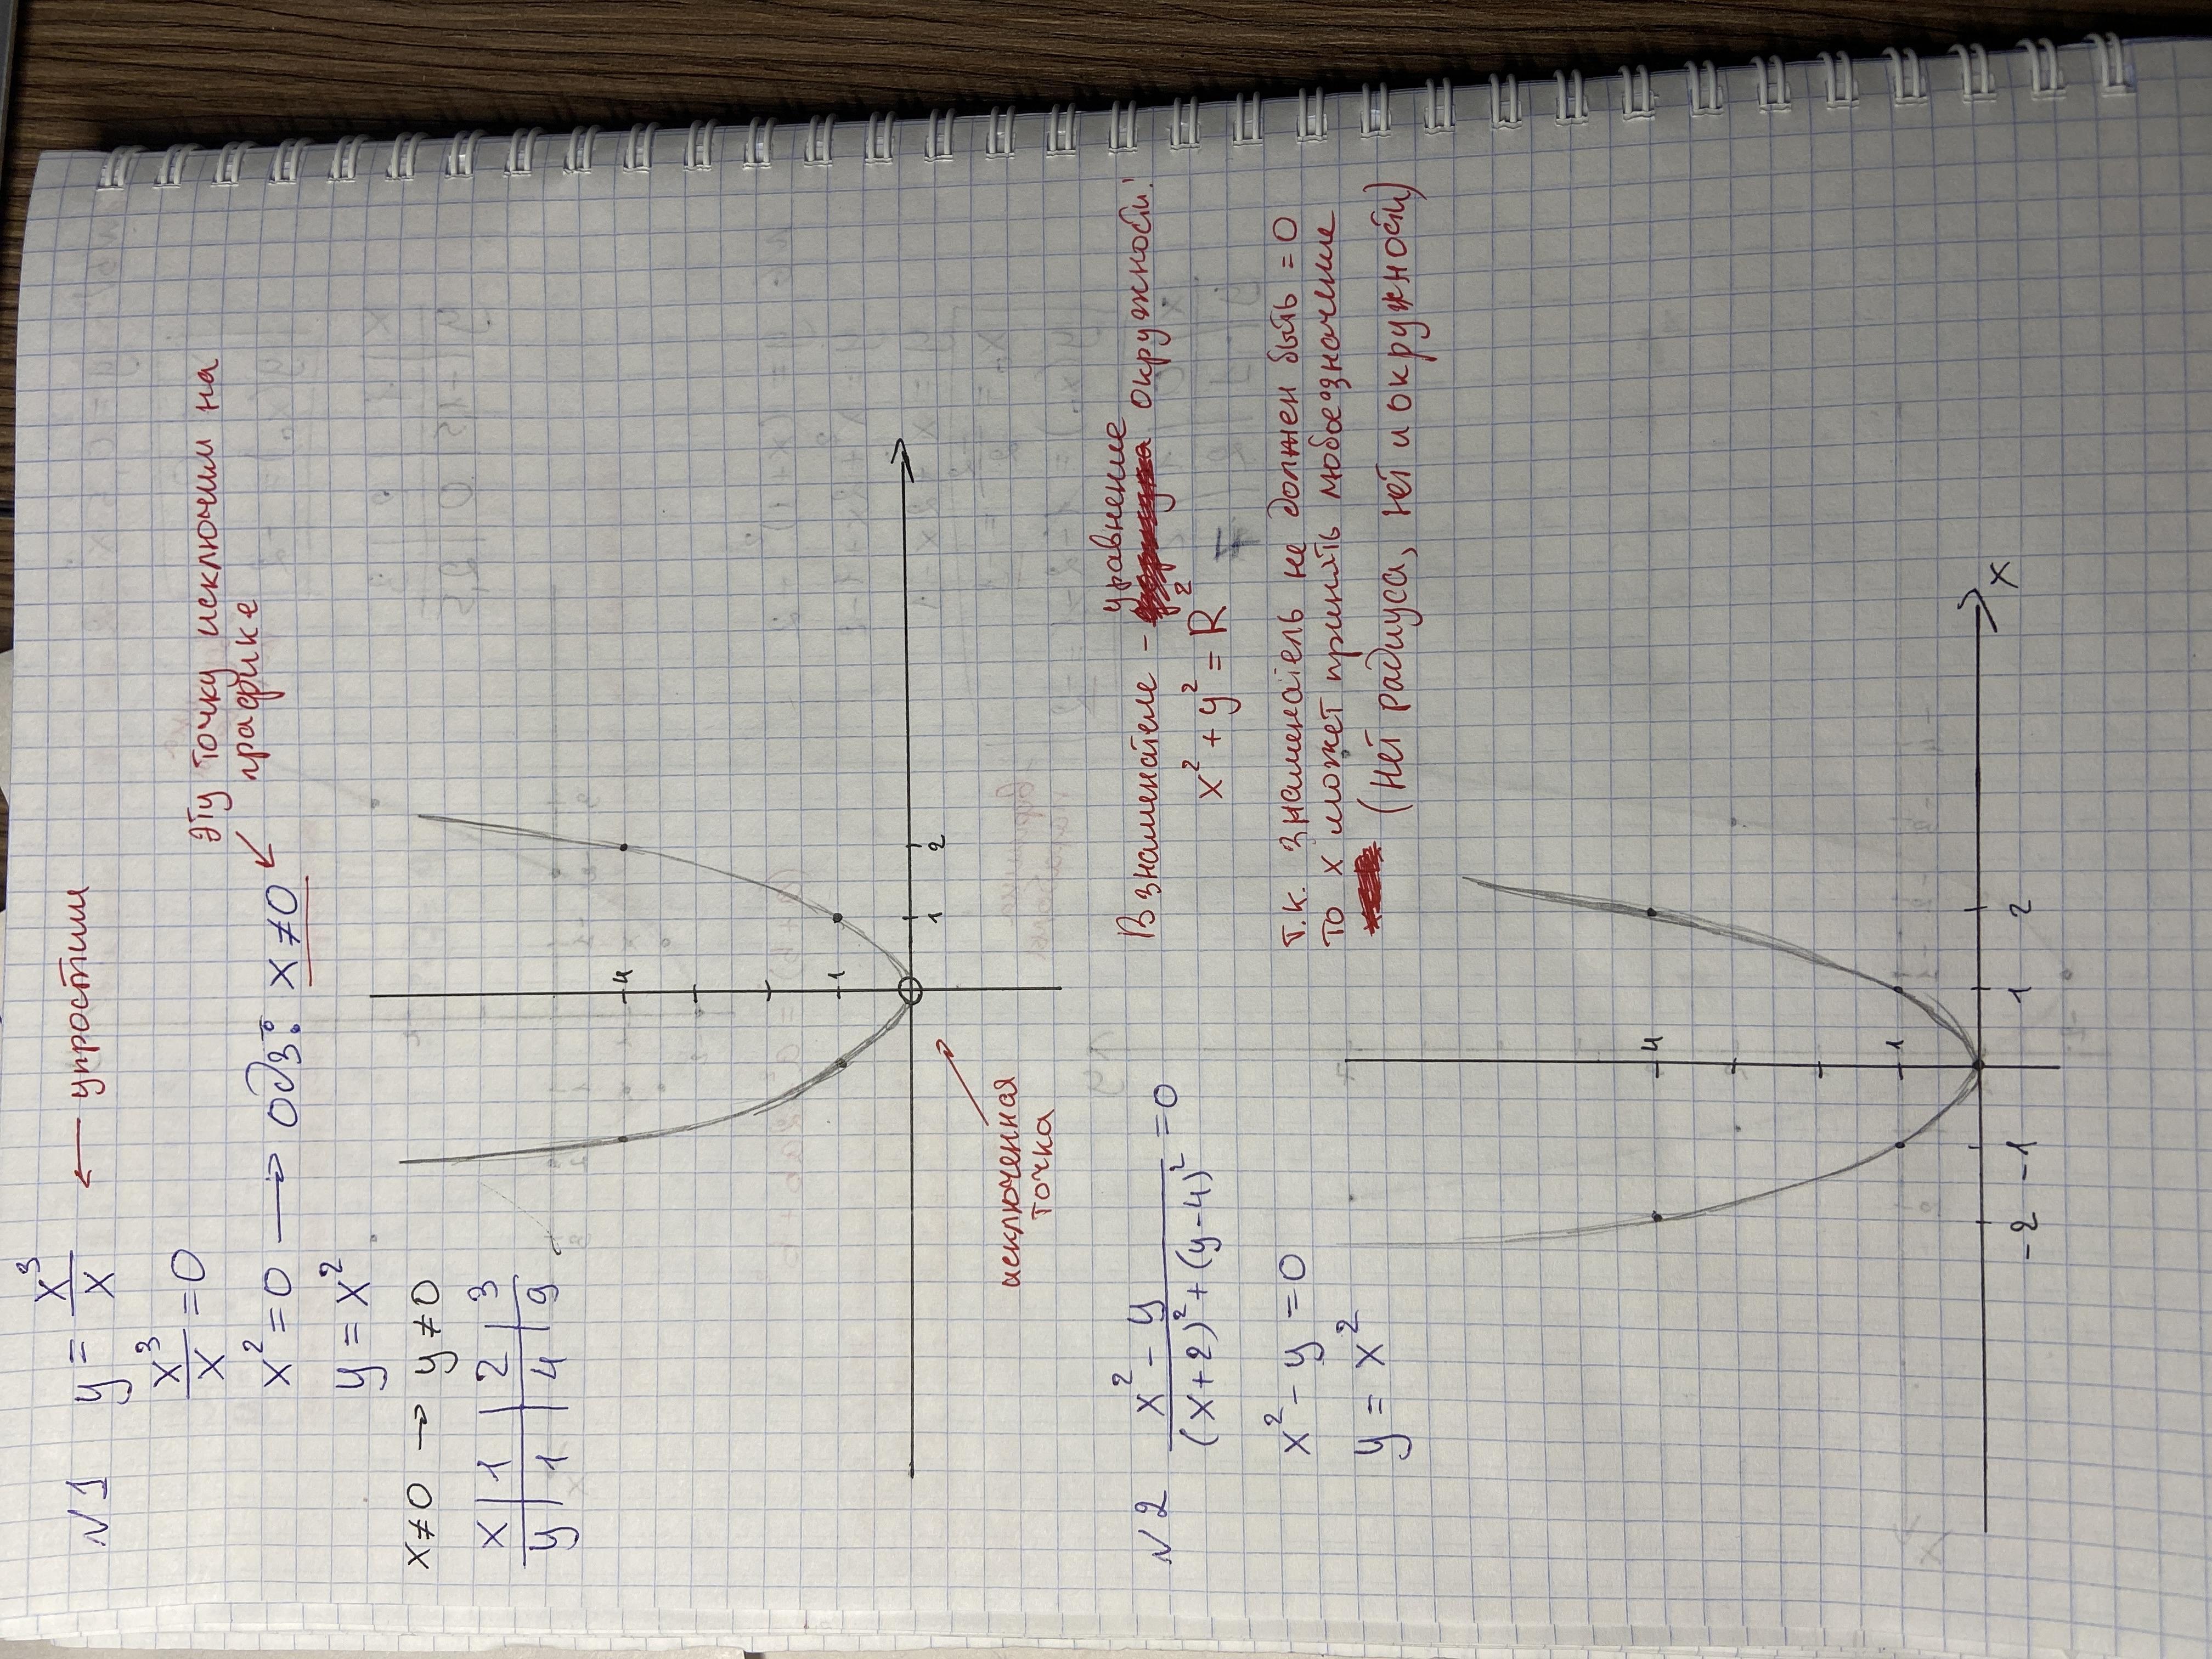 N1 y = x³/x ← упростим
x³/x = 0
Эту точку исключим на
графике
x² = 0 → ОДЗ: x ≠ 0
y = x²
x ≠ 0 → y ≠ 0
x | 1 | 2 | 3
y | 1 | 4 | 9
4
1
1 2
исключенная
точка
N2 (x² - y)/((x+2)² + (y-4)²) = 0
x² - y = 0
y = x²
В знаменателе - уравнение окружности!
x² + y² = R²
т.к. знаменатель не должен быть = 0
то x может принять любое значение
(нет радиуса, нет и окружности)
4
1
-2 -1 1 2 x